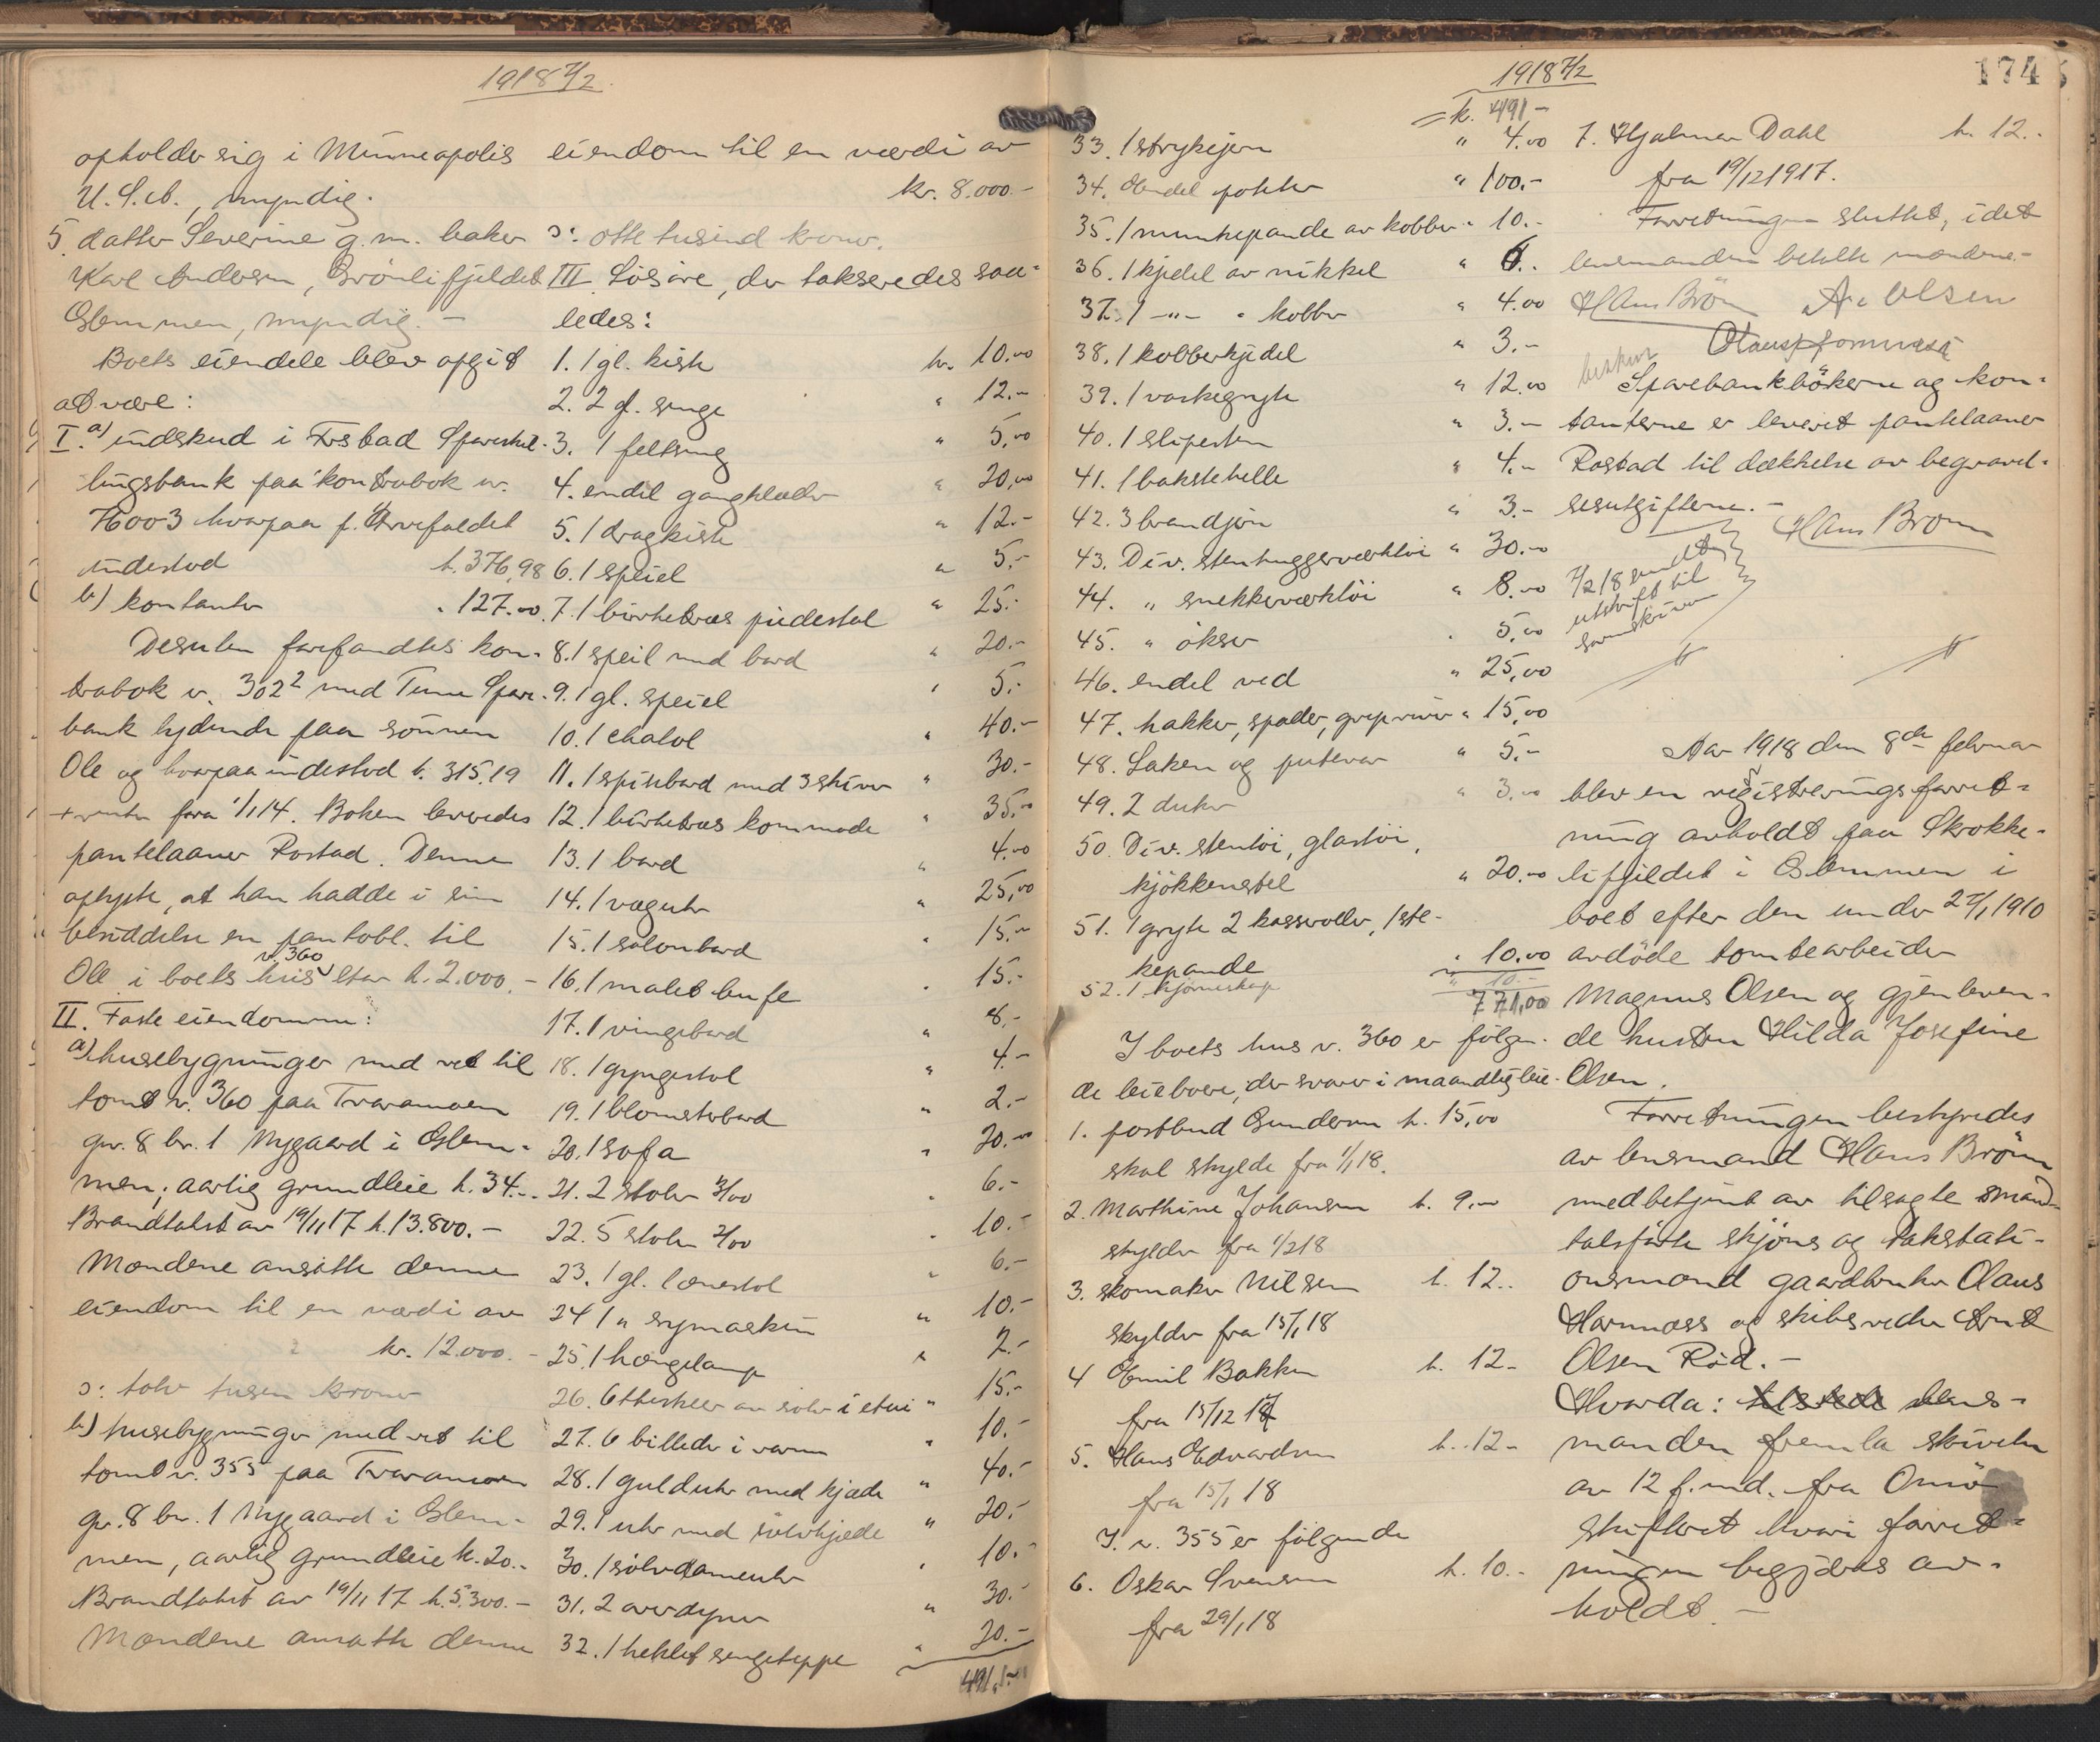 1918 7/2
opholder sig i Minneapolis
U.S.A., myndig.
5. datter Severine g.m. baker
Karl Andersen, Brönlifjeldet
Glemmen, myndig. –
Boets eiendele blev opgit
at være:
I. a) indskud i Fr.stad Spareskil-
lingsbank paa kontrabok nr.
76003 hvorpaa f. Arvefaldet
indestod k. 376,98
b) kontanter " 127.00
Desuten forfandtes kon-
trabok nr. 3022 med Tune Spare-
bank lydende paa sönnen
Ole og hvorpaa indestod k. 315.19
+ renter fra 1/1 14. Boken leveredes
pantelaaner Rostad. Denne
oplyste, at han hadde i sin
besiddelse en pantobl. til
Ole i boets hus nr. 360 stor k. 2.000.-
II. Faste eiendomme:
a) husebygninger med ret til
tomt nr. 360 paa Traramoen
gr. 8 br. 1 Nygaard i Glem-
men; aarlig grundleie k. 34.-
Brandtakst av 19/11 17 k. 13.800.-
Mændene ansatte denne
eiendom til en værdi av
kr. 12.000.-
ɔ: tolv tusen kroner
b) husebygninger med ret til
tomt nr. 355 paa Traramoen
gr. 8 br. 1 Nygaard i Glem-
men, aarlig grundleie k. 20.-
Brandtakst av 19/11 17 k. 5.300.-
Mændene ansatte denne
eiendom til en værdi av
kr. 8.000.-
ɔ: otte tusind kroner.
III. Lösöre, der takseredes saa-
ledes:
1. 1 gl. kiste kr. 10.00
2. 2 gl. senge " 12.-
3. 1 feltseng " 5,00
4. endel gangklæder " 20,00
5. 1 dragkiste " 12.-
6. 1 speiel " 5.-
7. 1 birketræs piedestal " 25.-
8. 1 speil med bord " 20.-
9. 1 gl. speiel " 5.-
10. 1 chatol " 40.-
11. 1 spisebord med 3 skiver " 30.-
12. 1 birketræs kommode " 35.00
13. 1 bord " 4.00
14. 1 vægur " 25,00
15. 1 salonbord " 15.-
16. 1 malet bufe " 15.-
17. 1 vingebord " 8.-
18. 1 gyngestol " 4.-
19. 1 blomsterbord " 2.-
20. 1 sofa " 20.00
21. 2 stoler 3/00 " 6.-
22. 5 stoler 2/00 " 10.-
23. 1 gl. lænestol " 6.-
24. 1 " symaskin " 10.-
25. 1 hængelampe " 2.-
26. 6 theskeer av sölv i etui " 15.-
27. 6 billeder i ramme " 10.-
28. 1 guldur med kjæde " 40.-
29. 1 ur med sölvkjede " 20.-
30. 1 sölvdameur " 10.-
31. 2 overdyner " 30.-
32. 1 heklet sengeteppe " 20.-
491,-
1918 7/2
174
= k. 491-
33. 1 strykejern " 4.00
34. Endel potter " 100.-
35. 1 munkepande av kobber " 10.-
36. 1 kjedel av nikkel " 6.-
37. 1 -"- " kobber " 4.00
38. 1 kobberkjedel " 3.-
39. 1 vaskegryte " 12.00
40. 1 slipesten " 3.-
41. 1 bakstehelle " 4.-
42. 3 brandjern " 3.-
43. Div. stenhuggerverktöi " 30.-
44. " snekkerverktöi " 8.00
45. " ökser " 5.00
46. endel ved " 25,00
47. hakker, spader, grep, river " 15,00
48. Laken og putevar " 5.-
49. 2 duker " 3.00
50. Div. stentöi, glastöi,
kjökkenstel " 20.00
51. 1 gryte 2 kasseroller, 1 ste-
kepande " 10.00
52. 1 hjörneskap " 10.-
771,00
I boets hus nr. 360 er fölgen-
de leieboere, der svarer i maandlig leie
1. postbud Gundersen k. 15,00
skal skylde fra 1/1 18.
2. Marthine Johansen k. 9.00
skylder fra 1/2 18
3. skomaker Nilsen k. 12..
skylder fra 15/1 18
4 Emil Bakken k. 12-
fra 15/12 17
5. Hans Edvardsen k. 12-
fra 15/1 18
I nr. 355 er fölgende
6. Oskar Svensen k. 10.-
fra 29/1 18
7. Hjalmar Dahl k. 12..
fra 19/12 1917.
Forretningen sluttet, idet
lensmanden betalte mændene.-
Hans Brön A. Olsen
Olaus Hornnæss
beskrevet
Sparebankbökerne og kon-
tanterne er leveret pantelaaner
Rostad til dækkelse av begravel-
sesutgifterne. –
Hans Brönn
7/2 18 sendt
utskrift til
sorenskriveren
Aar 1918 den 8de februar
blev en registreringsforret-
ning avholdt paa Skrokke-
lifjeldet i Glemmen i
boet efter den under 27/1 1910
avdöde tomtearbeider
Magnus Olsen og gjenleven-
de hustru Hilda Josefine
Olsen.
Forretningen bestyredes
av lensmand Hans Brönn
med betjent av tilsagte mand-
talsförte skjöns og takstati-
onsmænd gaardbruker Olaus
Hornnæss og skibsreder Arnt
Olsen Röd. –
Hvorda: lens-
manden fremla skrivelse
av 12 f. md. fra Onsö
skifteret hvori forret-
ningen begjæres av-
holdt. –